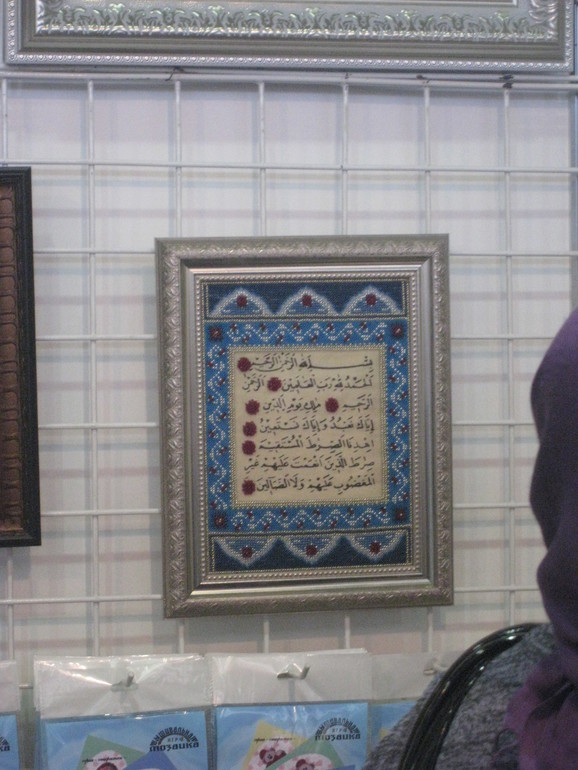 بِسْمِ اللهِ الرَّحْمٰنِ الرَّحِيمِ
اَلْحَمْدُ لِلهِ رَبِّ الْعٰلَمِينَ الرَّحْمٰنِ
الرَّحِيمِ مٰلِكِ يَوْمِ الدِّينِ
اِيَّاكَ نَعْبُدُ وَاِيَّاكَ نَسْتَعِينُ
اِهْدِنَا الصِّرٰطَ الْمُسْتَقِيمَ
صِرٰطَ الَّذِينَ اَنْعَمْتَ عَلَيْهِمْ غَيْرِ
الْمَغْضُوبِ عَلَيْهِمْ وَلَا الضَّالِّينَ
мозаика
мозаика